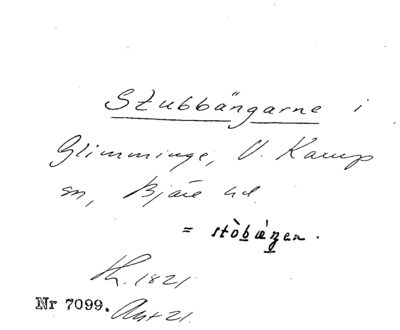 Stubbängarne i
Glimminge, V. Karup
sn, Bjäre hd.
= stòbæ̀ŋen.
1821
Nr 7099. Ant 21.